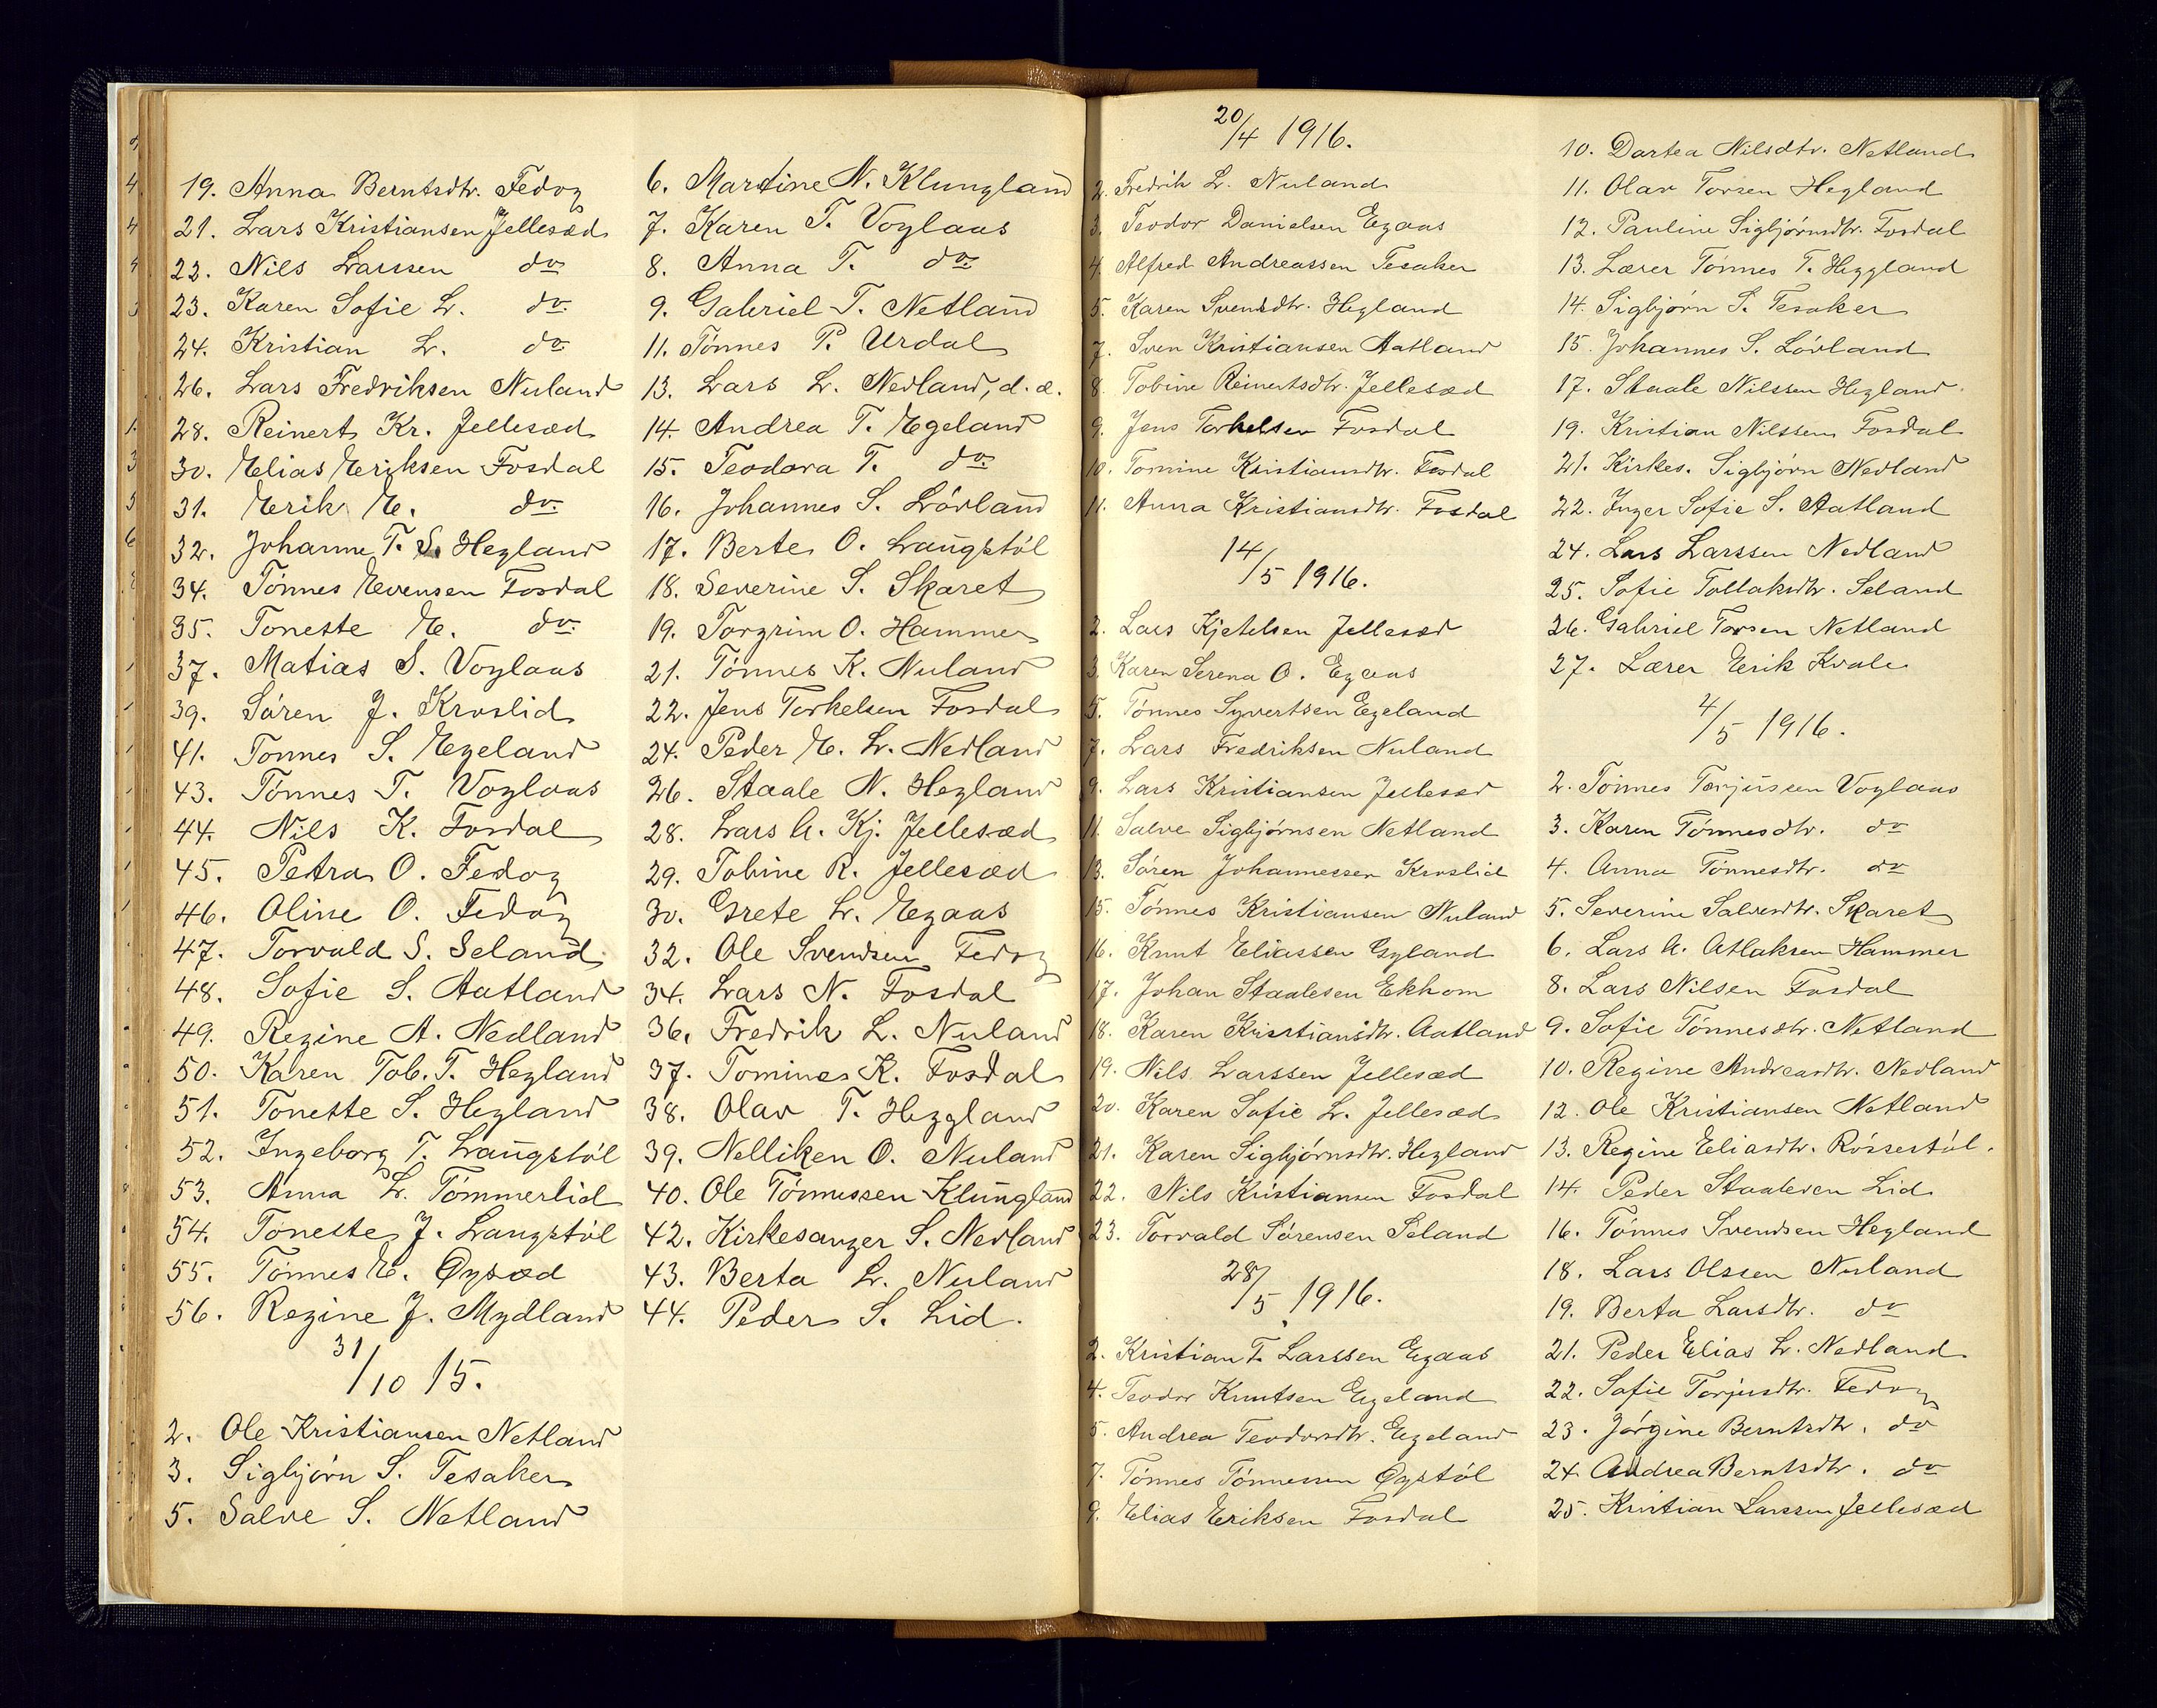 19. Anna Berntsdtr. Fedog
21. Lars Kristiansen Jellesæd
22. Nils Larssen do
23. Karen Sofie L. do
24. Kristian L. do
26. Lars Fredriksen Nuland
28. Reinert Kr. Jellesæd
30. Elias Eriksen Fosdal
31. Erik E. do
32. Johanne T. S. Hegland
34. Tønnes Evensen Fosdal
35. Tonette E. do
37. Matias S. Voglaas
39. Søren J. Kroslid
41. Tonnes S. Egeland
43. Tønnes T. Voglaas
44. Nils K. Fosdal
45. Petra O. Fedog
46. Oline O. Fedog
47. Torvald S. Seland
48. Sofie S. Aatland
49. Regine A. Nedland
50. Karen Tob. T. Hegland
51. Tonette S. Hegland
52. Ingeborg T. Laugstøl
53. Anna L. Tømmerlid
54. Tonette J. Laugstøl
55. Tønnes E. Øysæd
56. Regine J. Mydland
31/10 15.
2. Ole Kristiansen Netland
3. Sigbjørn S. Tesaker
5. Salve S. Netland
6. Martine N. Klungland
7. Karen T. Voglaas
8. Anna T. do
9. Gabriel T. Netland
11. Tønnes P. Urdal
13. Lars L. Nedland, d. æ.
14. Andrea T. Egeland
15. Teodora T. do
16. Johannes S. Lövland
17. Berte O. Laugstøl
18. Severine S. Skaret
19. Torgrim O. Hammer
21. Tönnes K. Nuland
22. Jens Torkelsen Fosdal
24. Peder E. L. Nedland
26. Staale N. Hegland
28. Lars A. Kj. Jellesæd
29. Tobine R. Jellesæd
30. Grete L. Egaas
32. Ole Svendsen Fedog
34. Lars N. Fosdal
36. Fredrik L. Nuland
37. Tomine K. Fosdal
38. Olav T. Heggland
39. Nelliken O. Nuland
40. Ole Tönnessen Klungland
42. Kirkesanger S. Nedland
43. Berta L. Nuland
44. Peder S. Lid.
20/4 1916.
2. Fredrik L. Nuland
3. Teodor Danielsen Egaas
4. Alfred Andreassen Tesaker
5. Karen Svendsdtr. Hegland
7. Sven Kristiansen Aatland
8. Tobine Reinertsdtr. Jellesæd
9. Jens Torkelsen Fosdal
10. Tomine Kristiansdtr. Fosdal
11. Anna Kristiansdtr. Fosdal
14/5 1916.
2. Lars Kjetelsen Jellesæd
3. Karen Serena O. Egaas
5. Tønnes Syvertsen Egeland
7. Lars Fredriksen Nuland
9. Lars Kristiansen Jellesæd
11. Salve Sigbjørnsen Netland
13. Søren Johannessen Kroslid
15. Tønnes Kristiansen Nuland
16. Knut Eliassen Gyland
17. Johan Staalesen Ekhom
18. Karen Kristiansdtr. Aatland
19. Nils Larssen Jellesæd
20. Karen Sofie L. Jellesæd
21. Karen Sigbjørnsdtr. Hegland
22. Nils Kristiansen Fosdal
23. Torvald Sørensen Seland
28/5 1916.
2. Kristian T. Larssen Egaas
4. Teodor Knutsen Egeland
5. Andrea Teodorsdtr. Egeland
7. Tønnes Tønnessen Øystøl
9. Elias Eriksen Fosdal
10. Dortea Nilsdtr. Netland
11. Olav Torsen Hegland
12. Pauline Sigbjørnsdtr. Fosdal
13. Lærer Tønnes T. Heggland
14. Sigbjørn S. Tesaker
15. Johannes S. Lövland
17. Staale Nilssen Hegland
19. Kristian Nilssen Fosdal
21. Kirkes. Sigbjørn Nedland
22. Inger Sofie S. Aatland
24. Lars Larssen Nedland
25. Sofie Tollaksdtr. Seland
26. Gabriel Torsen Netland
27. Lærer Eerik Kvale
4/5 1916.
2. Tönnes Torjussen Voglaas
3. Karen Tønnesdtr. do
4. Anna Tönnesdtr. do
5. Severine Salvesdtr. Skaret
6. Lars A. Atlaksen Hammer
8. Lars Nilsen Fosdal
9. Sofie Tönnesdtr. Netland
10. Regine Andreasdtr. Nedland
12. Ole Kristiansen Netland
13. Regine Eliasdtr. Røssestøl.
14. Peder Staalesen Lid
16. Tønnes Svendsen Hegland
18. Lars Olssen Nuland
19. Berta Larsdtr. do
21. Peder Elias L. Nedland
22. Sofie Torjusdtr. Fedog
23. Jørgine Berntsdtr. do
24. Andrea Berntsdtr. do
25. Kristian Larssen Jellesæd